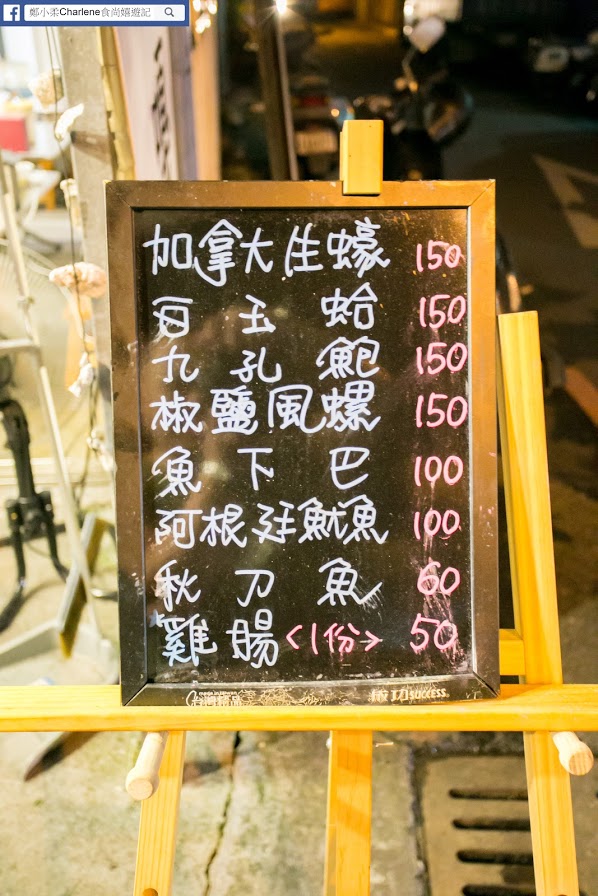 鄭小柔Charlene食尚嬉遊記
加拿大生蠔 150
百玉蛤 150
九孔鮑 150
椒鹽風螺 150
魚下巴 100
阿根廷魷魚 100
秋刀魚 60
雞腸<1份> 50
made in taiwan
台灣精品
成功SUCCESS